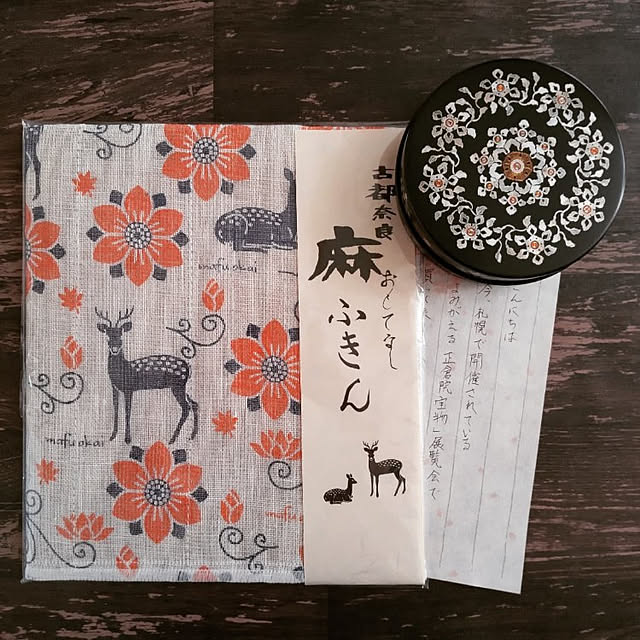 古都奈良
麻
おもてなし
ふきん
mafuokai
mafuokai
mafuo
こんにちは
今、札幌で開催されている
よみがえる 正倉院宝物」展覧会で